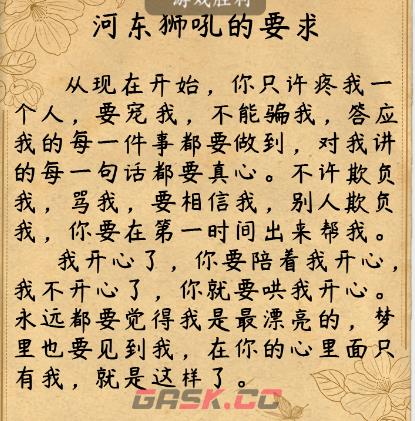 游戏胜利
河东狮吼的要求
从现在开始，你只许疼我一
个人，要宠我，不能骗我，答应
我的每一件事都要做到，对我讲
的每一句话都要真心。不许欺负
我，骂我，要相信我，别人欺负
我，你要在第一时间出来帮我。
我开心了，你要陪着我开心，
我不开心了，你就要哄我开心。
永远都要觉得我是最漂亮的，梦
里也要见到我，在你的心里面只
有我，就是这样了。
GASK.CC